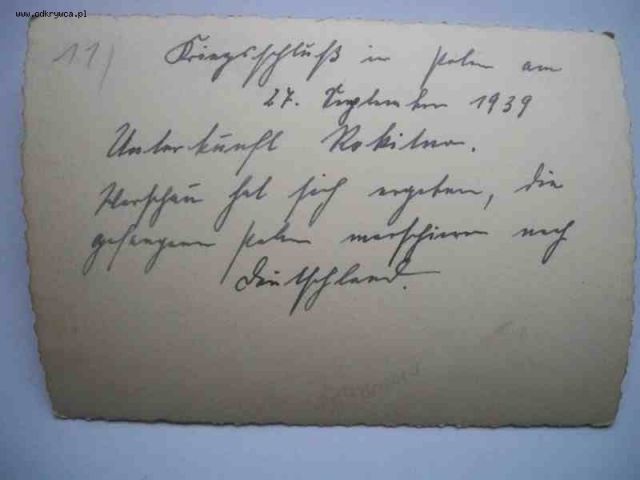 www.odkrywca.pl
11)
Kriegsschluß in Polen am
27. September 1939
Unterkunft Rokitno.
Warschau hat sich ergeben, die
gefangenen Polen marschieren nach
Deutschland.